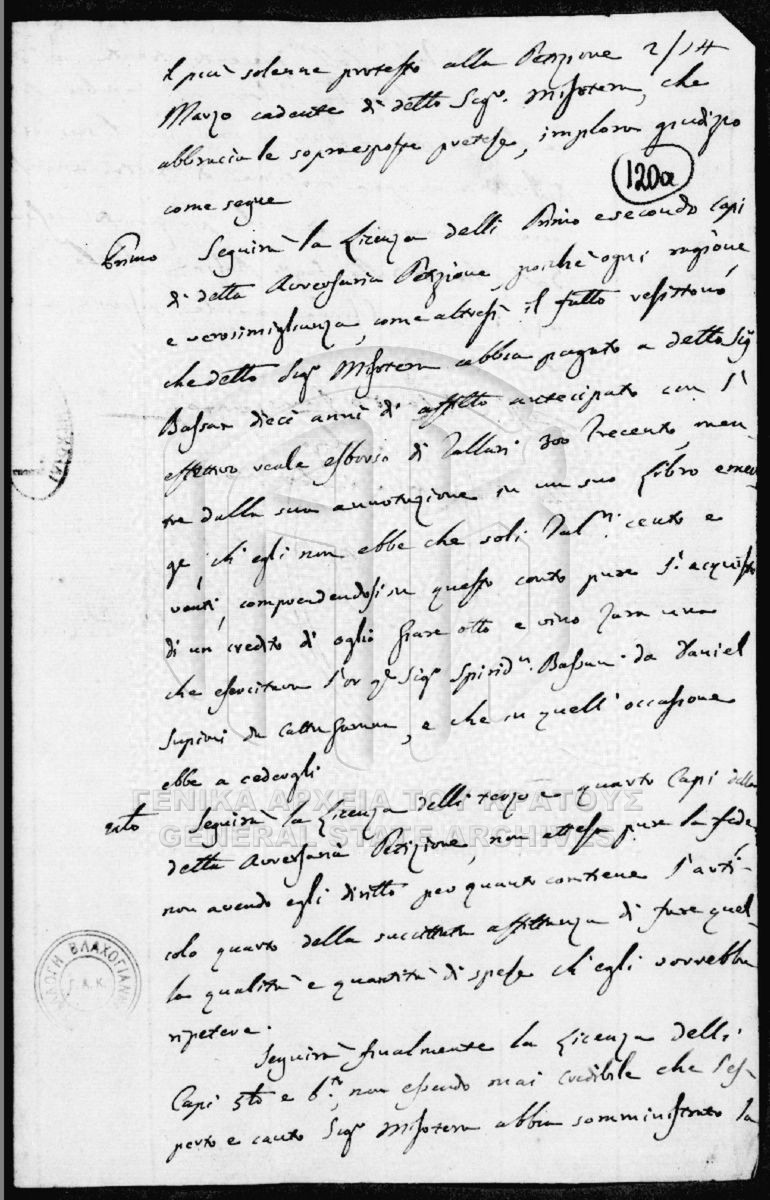 il più solenne protesto alla Petizione 2/14
Marzo cadente di detto Sigr. Misoterm, che
abbraccia le sopraesposte pretese, implora giudizio
120α
come segue
Primo Seguirà la Licenza delli Primo e secondo Capi
di detta Avversaria Petizione, poichè ogni ragione
e verosimiglianza, come altresì il fatto resistono,
che detto Sigr abbia pagato a detto Sigr
Bassan dieci anni di affitto antecipato con l'
effettivo reale esborso di Tallari 300 Trecento, men-
tre dalla sua annotazione in un suo Libro emer-
ge, ch'egli non ebbe che soli Talri: cento e
venti, comprendendosi in questo conto pure l'acquisto
di un credito di oglio Giare otto e vino Zara una
che esercitava Sigr Spiridn. Bassan da Daniel
Supini da, e che in quell'occasione
ebbe a cedergli
ΓΕΝΙΚΑ ΑΡΧΕΙΑ ΤΟΥ ΚΡΑΤΟΥΣ
Seguirà la Licenza delli terzo e quarto Capi della
GENERAL STATE ARCHIVES
detta Avversaria Petizione, non attesa pure la fede
non avendo egli diritto per quanto contiene l'arti-
colo quarto della succittata affittanza di fare quel-
la qualità e quantità di spese ch'egli vorrebbe
ΒΛΑΧΟΓΙΑΝΝΗ
Γ.Α.Κ.
ripetere.
Seguirà finalmente la Licenza delli
Capi 5to e 6to, non essendo mai credibile che l'es-
perto e cauto Sigr abbia somministrato la